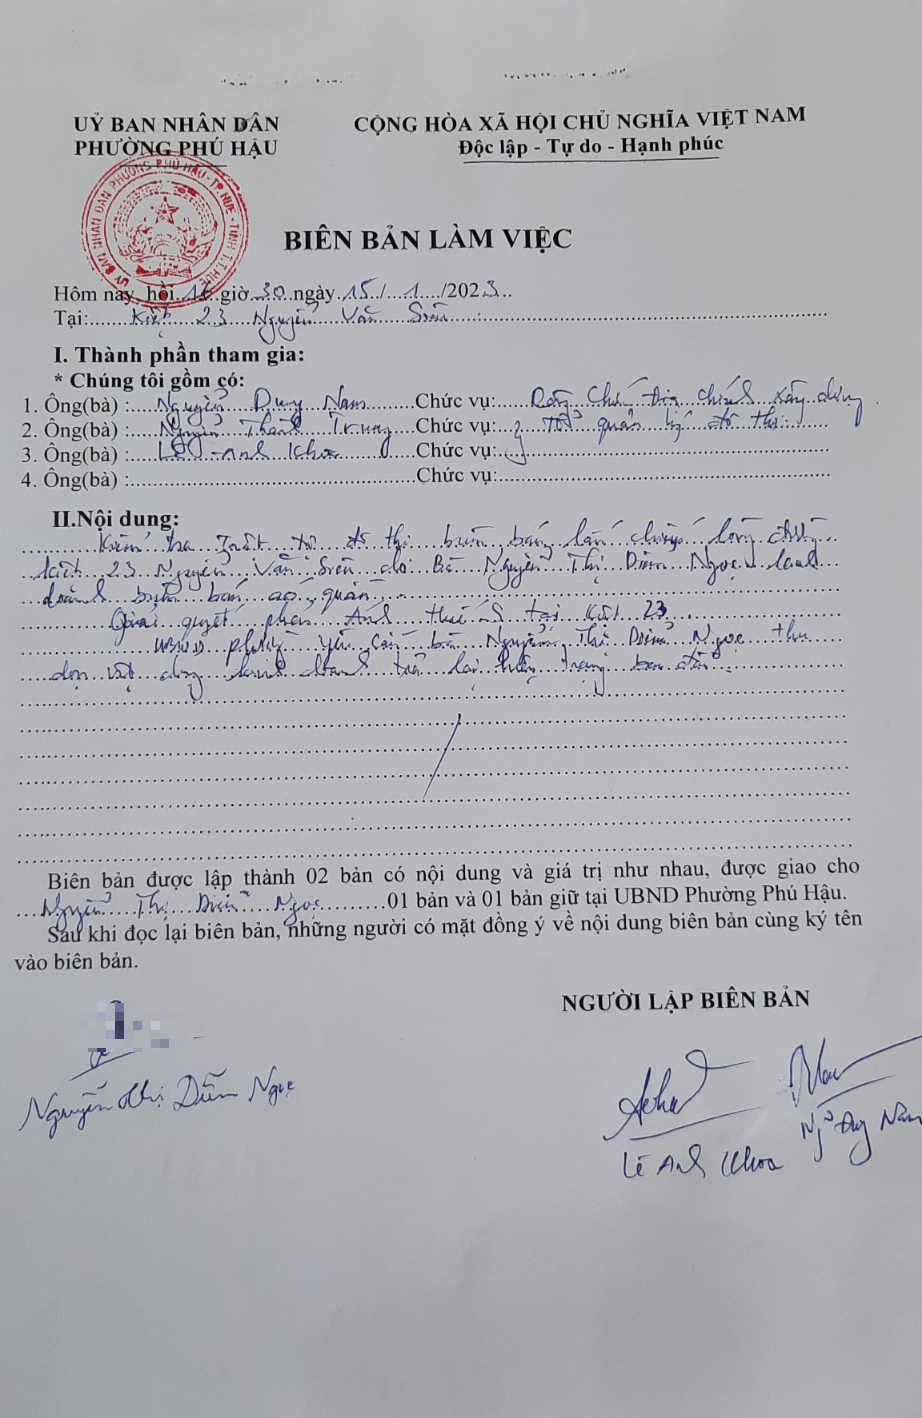 UỶ BAN NHÂN DÂN
PHƯỜNG PHÚ HẬU
CỘNG HÒA XÃ HỘI CHỦ NGHĨA VIỆT NAM
Độc lập - Tự do - Hạnh phúc
UỶ BAN NHÂN DÂN PHƯỜNG PHÚ HẬU - TP. HUẾ - TỈNH T.T. HUẾ
BIÊN BẢN LÀM VIỆC
Hôm nay, hồi 16 giờ 30 ngày 15 / 1 /2023
Tại: Kiệt 23 Nguyễn Văn Siêu
I. Thành phần tham gia:
* Chúng tôi gồm có:
1. Ông(bà) : Nguyễn Duy Nam Chức vụ: Công Chức địa chính xây dựng
2. Ông(bà) : Nguyễn Thành Trung Chức vụ: Tổ quản lý đô thị
3. Ông(bà) : Lê Anh Khoa Chức vụ:
4. Ông(bà) : Chức vụ:
II.Nội dung:
Kiểm tra Trật tự đô thị buôn bán lấn chiếm lòng đường
kiệt 23 Nguyễn Văn Siêu do Bà Nguyễn Thị Diễm Ngọc kinh
doanh buôn bán áo quần
Giải quyết phản Ánh tại kiệt 23
UBND phường yêu cầu bà Nguyễn Thị Diễm Ngọc thu
dọn vật dụng kinh doanh trả lại hiện trạng ban đầu.
Biên bản được lập thành 02 bản có nội dung và giá trị như nhau, được giao cho
Nguyễn Thị Diễm Ngọc 01 bản và 01 bản giữ tại UBND Phường Phú Hậu.
Sau khi đọc lại biên bản, những người có mặt đồng ý về nội dung biên bản cùng ký tên
vào biên bản.
NGƯỜI LẬP BIÊN BẢN
Nguyễn Thị Diễm Ngọc
Lê Anh Khoa
Ng~ Duy Nam